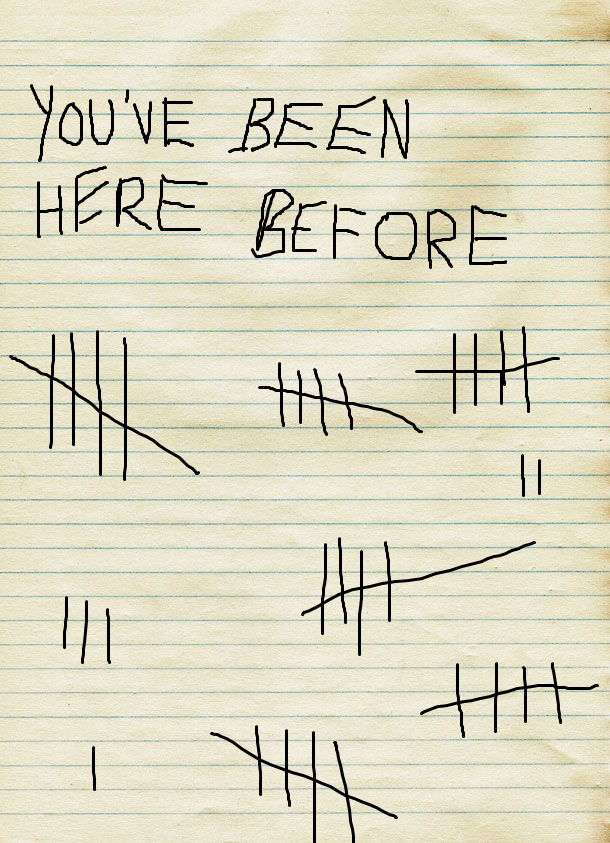 YOU'VE BEEN
HERE BEFORE